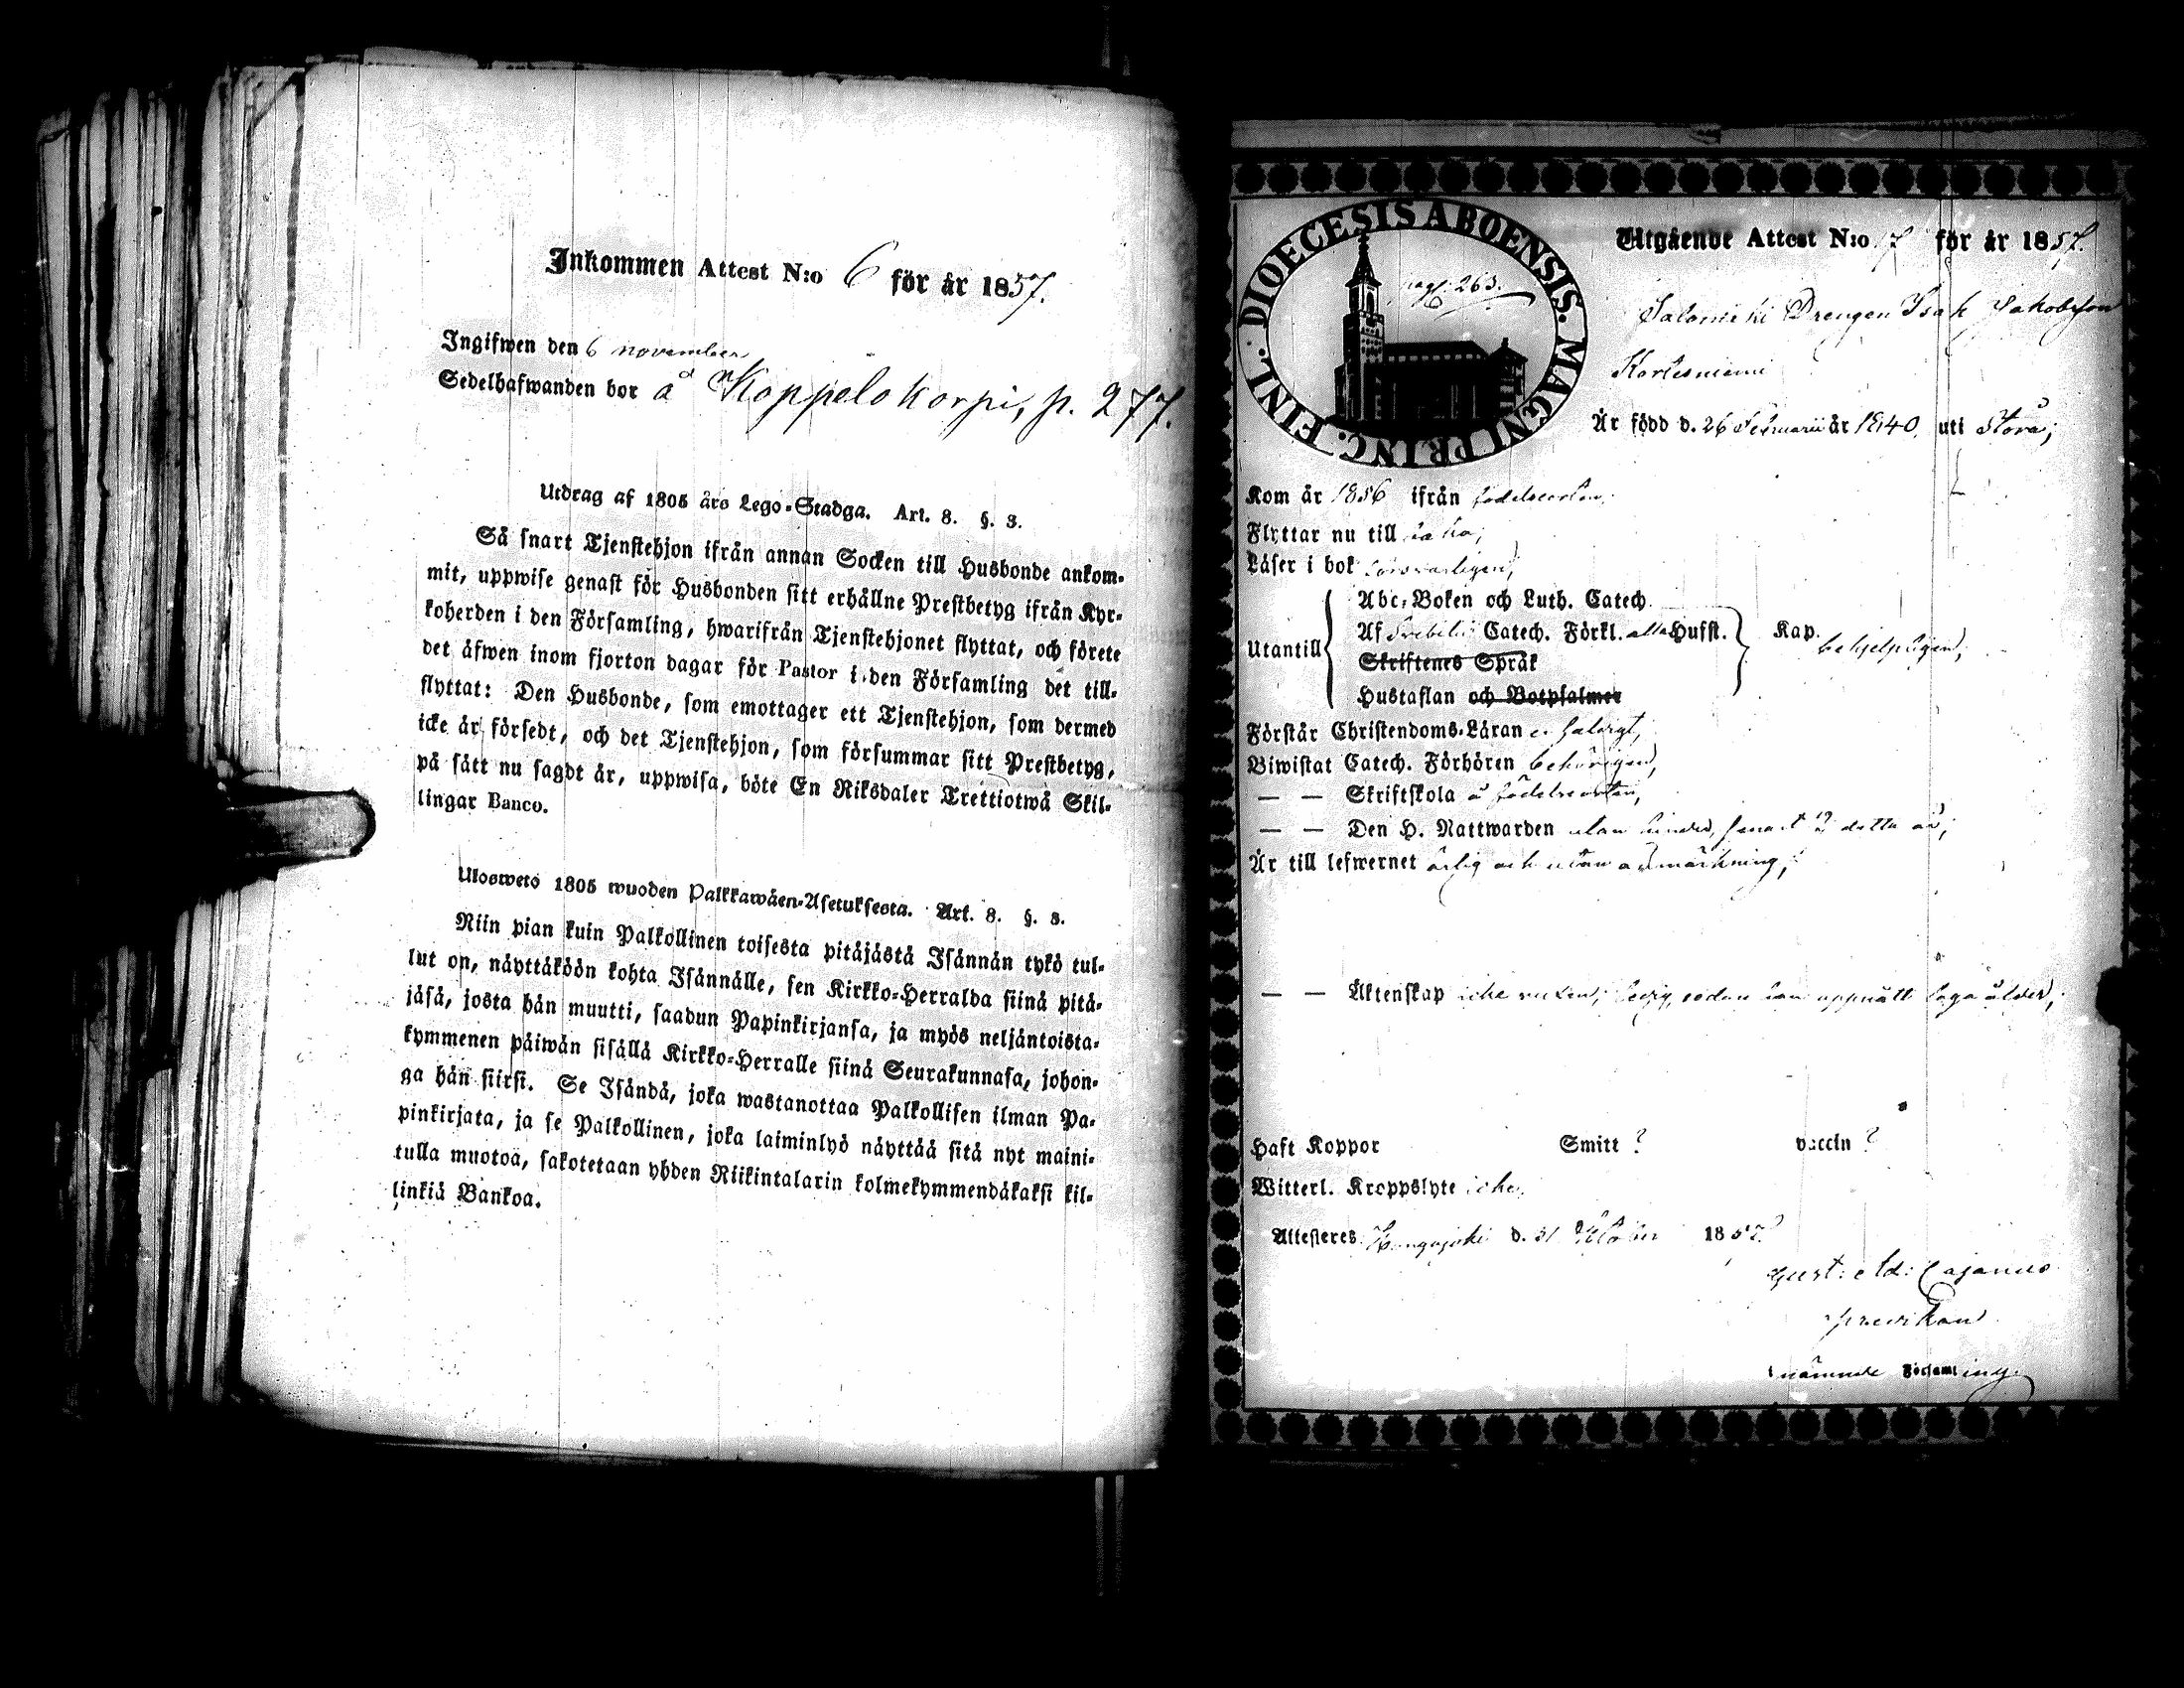 Inkommen Attest N:o 6 för år 1857.
Ingifwen den 6 november
Sedelhafwanden bor å Koppelokorpi, p. 277.
Utdrag af 1805 års Lego-Stadga. Art. 8. §. 3.
Så snart Tjenstehjon ifrån annan Socken till Husbonde ankom-
mit, uppwise genast för Husbonden sitt erhållne Prestbetyg ifrån Kyr-
koherden i den Församling, hwarifrån Tjenstehjonet flyttat, och förete
det äfwen inom fjorton dagar för Pastor i den Församling det till-
flyttat: Den Husbonde, som emottager ett Tjenstehjon, som dermed
icke är försedt, och det Tjenstehjon, som försummar sitt Prestbetyg,
på sätt nu sagdt är, uppwisa, böte En Riksdaler Trettiotwå Skil-
lingar Banco.
Ulosweto 1805 wuoden Palkkawäen-Asetuksesta. Art. 8. §. 3.
Niin pian kuin Palkollinen toisesta pitäjästä Isännän tykö tul-
lut on, näyttäköön kohta Isännälle, sen Kirkko-Herralda siinä pitä-
jäsä, josta hän muutti, saadun Papinkirjansa, ja myös neljäntoista-
kymmenen päiwän sisällä Kirkko-Herralle siinä Seurakunnasa, johon-
ga hän siirsi. Se Isändä, joka wastanottaa Palkollisen ilman Pa-
pinkirjata, ja se Palkollinen, joka laiminlyö näyttää sitä nyt maini-
tulla muotoa, sakotetaan yhden Riikintalarin kolmekymmendäkaksi kil-
linkiä Bankoa.
DIOECESIS ABOENSIS. MAGNI PRINC. FINL.
pag. 263.
Utgående Attest N:o 17 för år 1857.
Salomäki Drengen Isak Jakobsson
Kortesniemi
Är född d. 26 Februarii år 1840. uti Storå;
Kom år 1856 ifrån födelseorten;
Flyttar nu till
Läser i bok försvarligen;
Utantill
Abc-Boken och Luth. Catech.
Af Svebilii Catech. Förkl. alla Hufst. Kap. behjelpligen;
Skriftenes Språk
Hustaflan och Botpsalmer
Förstår Christendoms-Läran
Biwistat Catech. Förhören behörigen;
— — Skriftskola å födelseorten,
— — Den H. Nattwarden utan hinder, senast detta år;
Är till lefwernet ärlig och utan anmärkning;
— — Äktenskap icke vuxen; ledig, sedan han uppnått laga ålder;
Haft Koppor Smitt ? vaccin ?
Witterl. Kroppslyte icke.
Attesteres d. 31 October 1857.
Gust: Ad: Cajanus
Predikant
i nämnde Församling.